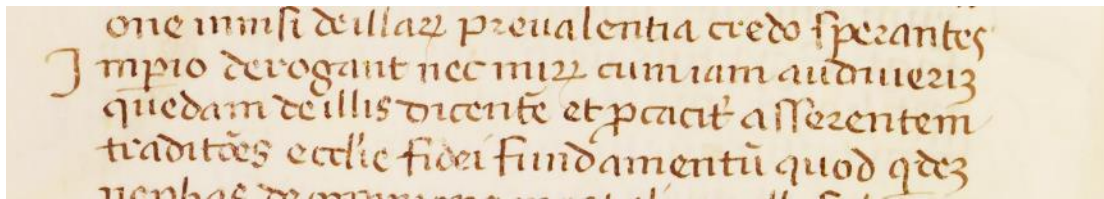 one innisi de illaꝝ preualentia credo sperantes
Imꝑio derogant nec miꝝ cum iam audiueriꝫ
quedam de illis dicentē et ꝓcacit᷑ asserentem
traditões eccl̅ie fidei fundamentū quod qͥdeꝫ